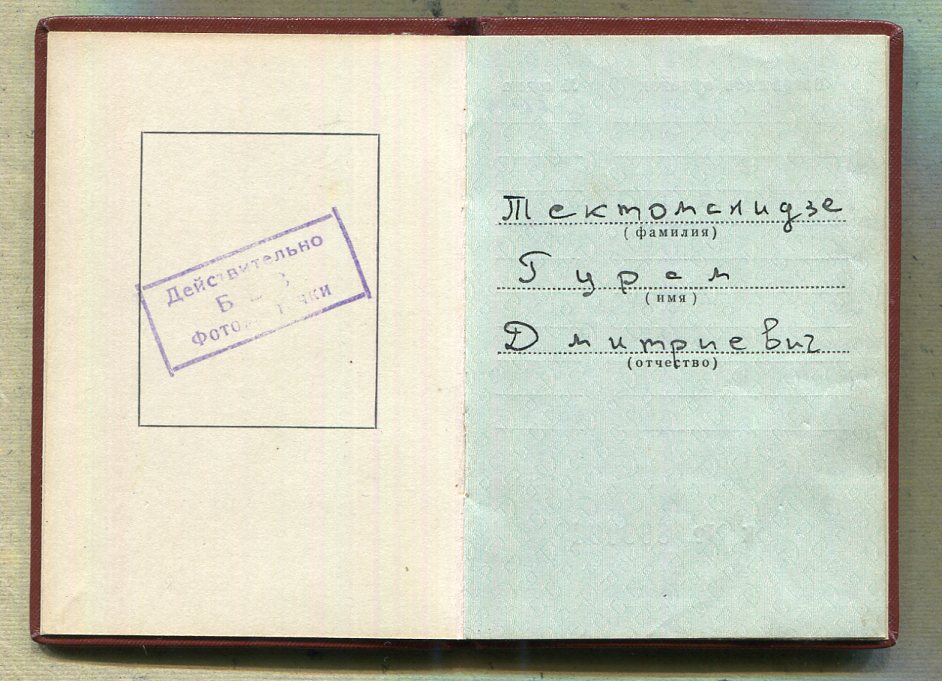 Действительно
БЕЗ
фотокарточки
Тектоманидзе
(фамилия)
Гурам
(имя)
Дмитриевич
(отчество)